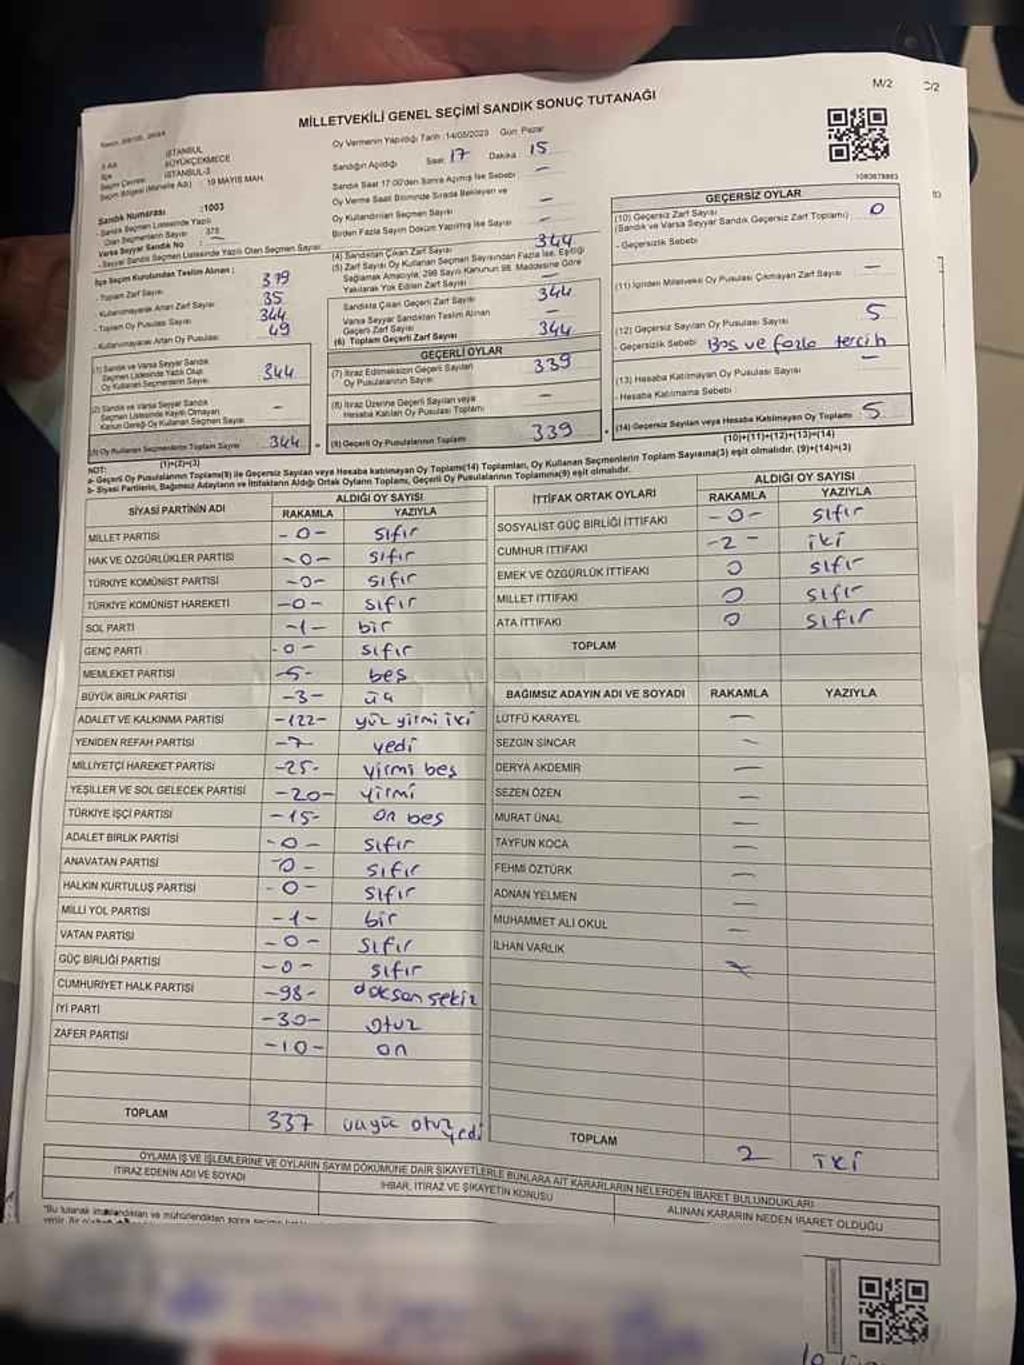 M/2
C/2
MİLLETVEKİLİ GENEL SEÇİMİ SANDIK SONUÇ TUTANAĞI
İSTANBUL
BÜYÜKÇEKMECE
İSTANBUL-3
Seçim Bölgesi (Mahalle Adı) : 19 MAYIS MAH.
Sandık Numarası :1003
- Sandık Seçmen Listesinde Yazılı
Olan Seçmenlerin Sayısı 375
Varsa Seyyar Sandık No : -
- Seyyar Sandık Seçmen Listesinde Yazılı Olan Seçmen Sayısı
Oy Vermenin Yapıldığı Tarih :14/05/2023 Gün: Pazar
Sandığın Açıldığı Saat: 17 Dakika: 15
Sandık Saat 17.00'den Sonra Açılmış İse Sebebi -
Oy Verme Saati Bitiminde Sırada Bekleyen ve
Oy Kullandırılan Seçmen Sayısı -
Birden Fazla Sayım Döküm Yapılmış İse Sayısı -
1083678863
İlçe Seçim Kurulundan Teslim Alınan ;
- Toplam Zarf Sayısı 379
- Kullanılmayarak Artan Zarf Sayısı 35
- Toplam Oy Pusulası Sayısı 344
- Kullanılmayarak Artan Oy Pusulası 49
(1) Sandık ve Varsa Seyyar Sandık
Seçmen Listesinde Yazılı Olup
Oy Kullanan Seçmenlerin Sayısı 344
(2) Sandık ve Varsa Seyyar Sandık
Seçmen Listesinde Kayıtlı Olmayan
Kanun Gereği Oy Kullanan Seçmen Sayısı -
(3) Oy Kullanan Seçmenlerin Toplam Sayısı 344
(1)+(2)=(3)
(4) Sandıktan Çıkan Zarf Sayısı 344
(5) Zarf Sayısı Oy Kullanan Seçmen Sayısından Fazla İse, Eşitliği
Sağlamak Amacıyla, 298 Sayılı Kanunun 98. Maddesine Göre
Yakılarak Yok Edilen Zarf Sayısı -
Sandıkta Çıkan Geçerli Zarf Sayısı 344
Varsa Seyyar Sandıktan Teslim Alınan
Geçerli Zarf Sayısı -
(6) Toplam Geçerli Zarf Sayısı 344
GEÇERLİ OYLAR
(7) İtiraz Edilmeksizin Geçerli Sayılan
Oy Pusulalarının Sayısı 339
(8) İtiraz Üzerine Geçerli Sayılan veya
Hesaba Katılan Oy Pusulası Toplamı -
(9) Geçerli Oy Pusulalarının Toplamı 339
GEÇERSİZ OYLAR
(10) Geçersiz Zarf Sayısı
(Sandık ve Varsa Seyyar Sandık Geçersiz Zarf Toplamı) 0
- Geçersizlik Sebebi
(11) İçinden Milletvekili Oy Pusulası Çıkmayan Zarf Sayısı -
(12) Geçersiz Sayılan Oy Pusulası Sayısı 5
- Geçersizlik Sebebi Boş ve fazla tercih
(13) Hesaba Katılmayan Oy Pusulası Sayısı -
- Hesaba Katılmama Sebebi :
(14) Geçersiz Sayılan veya Hesaba Katılmayan Oy Toplamı 5
(10)+(11)+(12)+(13)=(14)
NOT:
a- Geçerli Oy Pusulalarının Toplamı(9) ile Geçersiz Sayılan veya Hesaba katılmayan Oy Toplamı(14) Toplamları, Oy Kullanan Seçmenlerin Toplam Sayısına(3) eşit olmalıdır. (9)+(14)=(3)
b- Siyasi Partilerin, Bağımsız Adayların ve İttifakların Aldığı Ortak Oyların Toplamı, Geçerli Oy Pusulalarının Toplamına(9) eşit olmalıdır.
SİYASİ PARTİNİN ADI ALDIĞI OY SAYISI
RAKAMLA YAZIYLA
MİLLET PARTİSİ -0- sıfır
HAK VE ÖZGÜRLÜKLER PARTİSİ -0- sıfır
TÜRKİYE KOMÜNİST PARTİSİ -0- sıfır
TÜRKİYE KOMÜNİST HAREKETİ -0- sıfır
SOL PARTİ -1- bir
GENÇ PARTİ -0- sıfır
MEMLEKET PARTİSİ -5- beş
BÜYÜK BİRLİK PARTİSİ -3- üç
ADALET VE KALKINMA PARTİSİ -122- yüz yirmi iki
YENİDEN REFAH PARTİSİ -7- yedi
MİLLİYETÇİ HAREKET PARTİSİ -25- yirmi beş
YEŞİLLER VE SOL GELECEK PARTİSİ -20- yirmi
TÜRKİYE İŞÇİ PARTİSİ -15- on beş
ADALET BİRLİK PARTİSİ -0- sıfır
ANAVATAN PARTİSİ -0- sıfır
HALKIN KURTULUŞ PARTİSİ -0- sıfır
MİLLİ YOL PARTİSİ -1- bir
VATAN PARTİSİ -0- sıfır
GÜÇ BİRLİĞİ PARTİSİ -0- sıfır
CUMHURİYET HALK PARTİSİ -98- doksan sekiz
İYİ PARTİ -30- otuz
ZAFER PARTİSİ -10- on
TOPLAM 337 üçyüz otuz yedi
İTTİFAK ORTAK OYLARI ALDIĞI OY SAYISI
RAKAMLA YAZIYLA
SOSYALİST GÜÇ BİRLİĞİ İTTİFAKI -0- sıfır
CUMHUR İTTİFAKI -2- iki
EMEK VE ÖZGÜRLÜK İTTİFAKI 0 sıfır
MİLLET İTTİFAKI 0 sıfır
ATA İTTİFAKI 0 sıfır
TOPLAM
BAĞIMSIZ ADAYIN ADI VE SOYADI RAKAMLA YAZIYLA
LÜTFÜ KARAYEL -
SEZGİN SİNCAR -
DERYA AKDEMİR -
SEZEN ÖZEN -
MURAT ÜNAL -
TAYFUN KOCA -
FEHMİ ÖZTÜRK -
ADNAN YELMEN -
MUHAMMET ALİ OKUL -
İLHAN VARLIK
TOPLAM 2 iki
OYLAMA İŞ VE İŞLEMLERİNE VE OYLARIN SAYIM DÖKÜMÜNE DAİR ŞİKAYETLERLE BUNLARA AİT KARARLARIN NELERDEN İBARET BULUNDUKLARI
İTİRAZ EDENİN ADI VE SOYADI
İHBAR, İTİRAZ VE ŞİKAYETİN KONUSU
ALINAN KARARIN NEDEN İBARET OLDUĞU